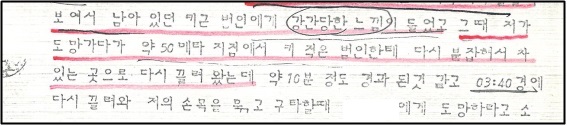 보여서 남아 있던 키큰 범인에게 강간당한 느낌이 들었고 그때 저가
도망가다가 약 50메타 지점에서 키 작은 범인한테 다시 붙잡혀서 차
있는 곳으로 다시 끌려 왔는데 약 10분 정도 경과 된것 같고 03:40경에
다시 끌려와 저의 손목을 묶고 구타할때 에게 도망하라고 소